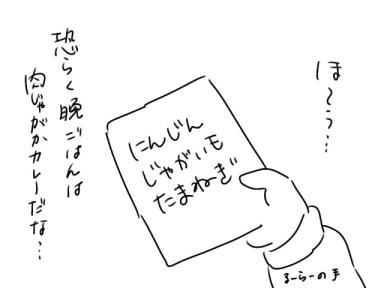 ほ～う…
にんじん
じゃがいも
たまねぎ
恐らく晩ごはんは
肉じゃがかカレーだな…
るーらーの手